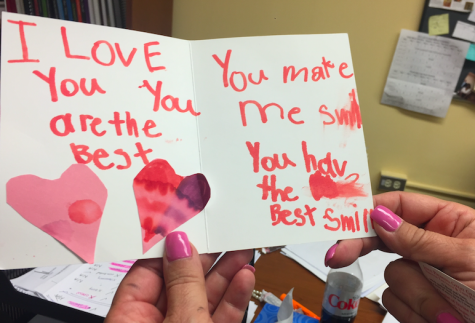 I LOVE
You You
are the
Best
You make
me smil
You hav
the
Best smil
Coke